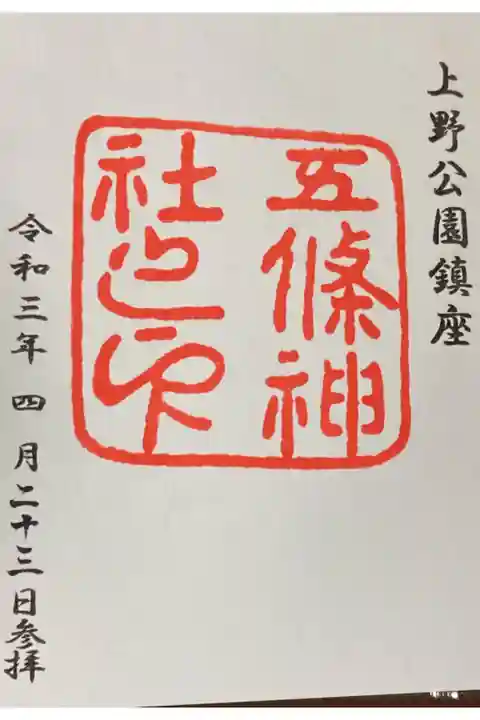 上野公園鎮座
五條神
社之印
令和三年四月二十三日参拝